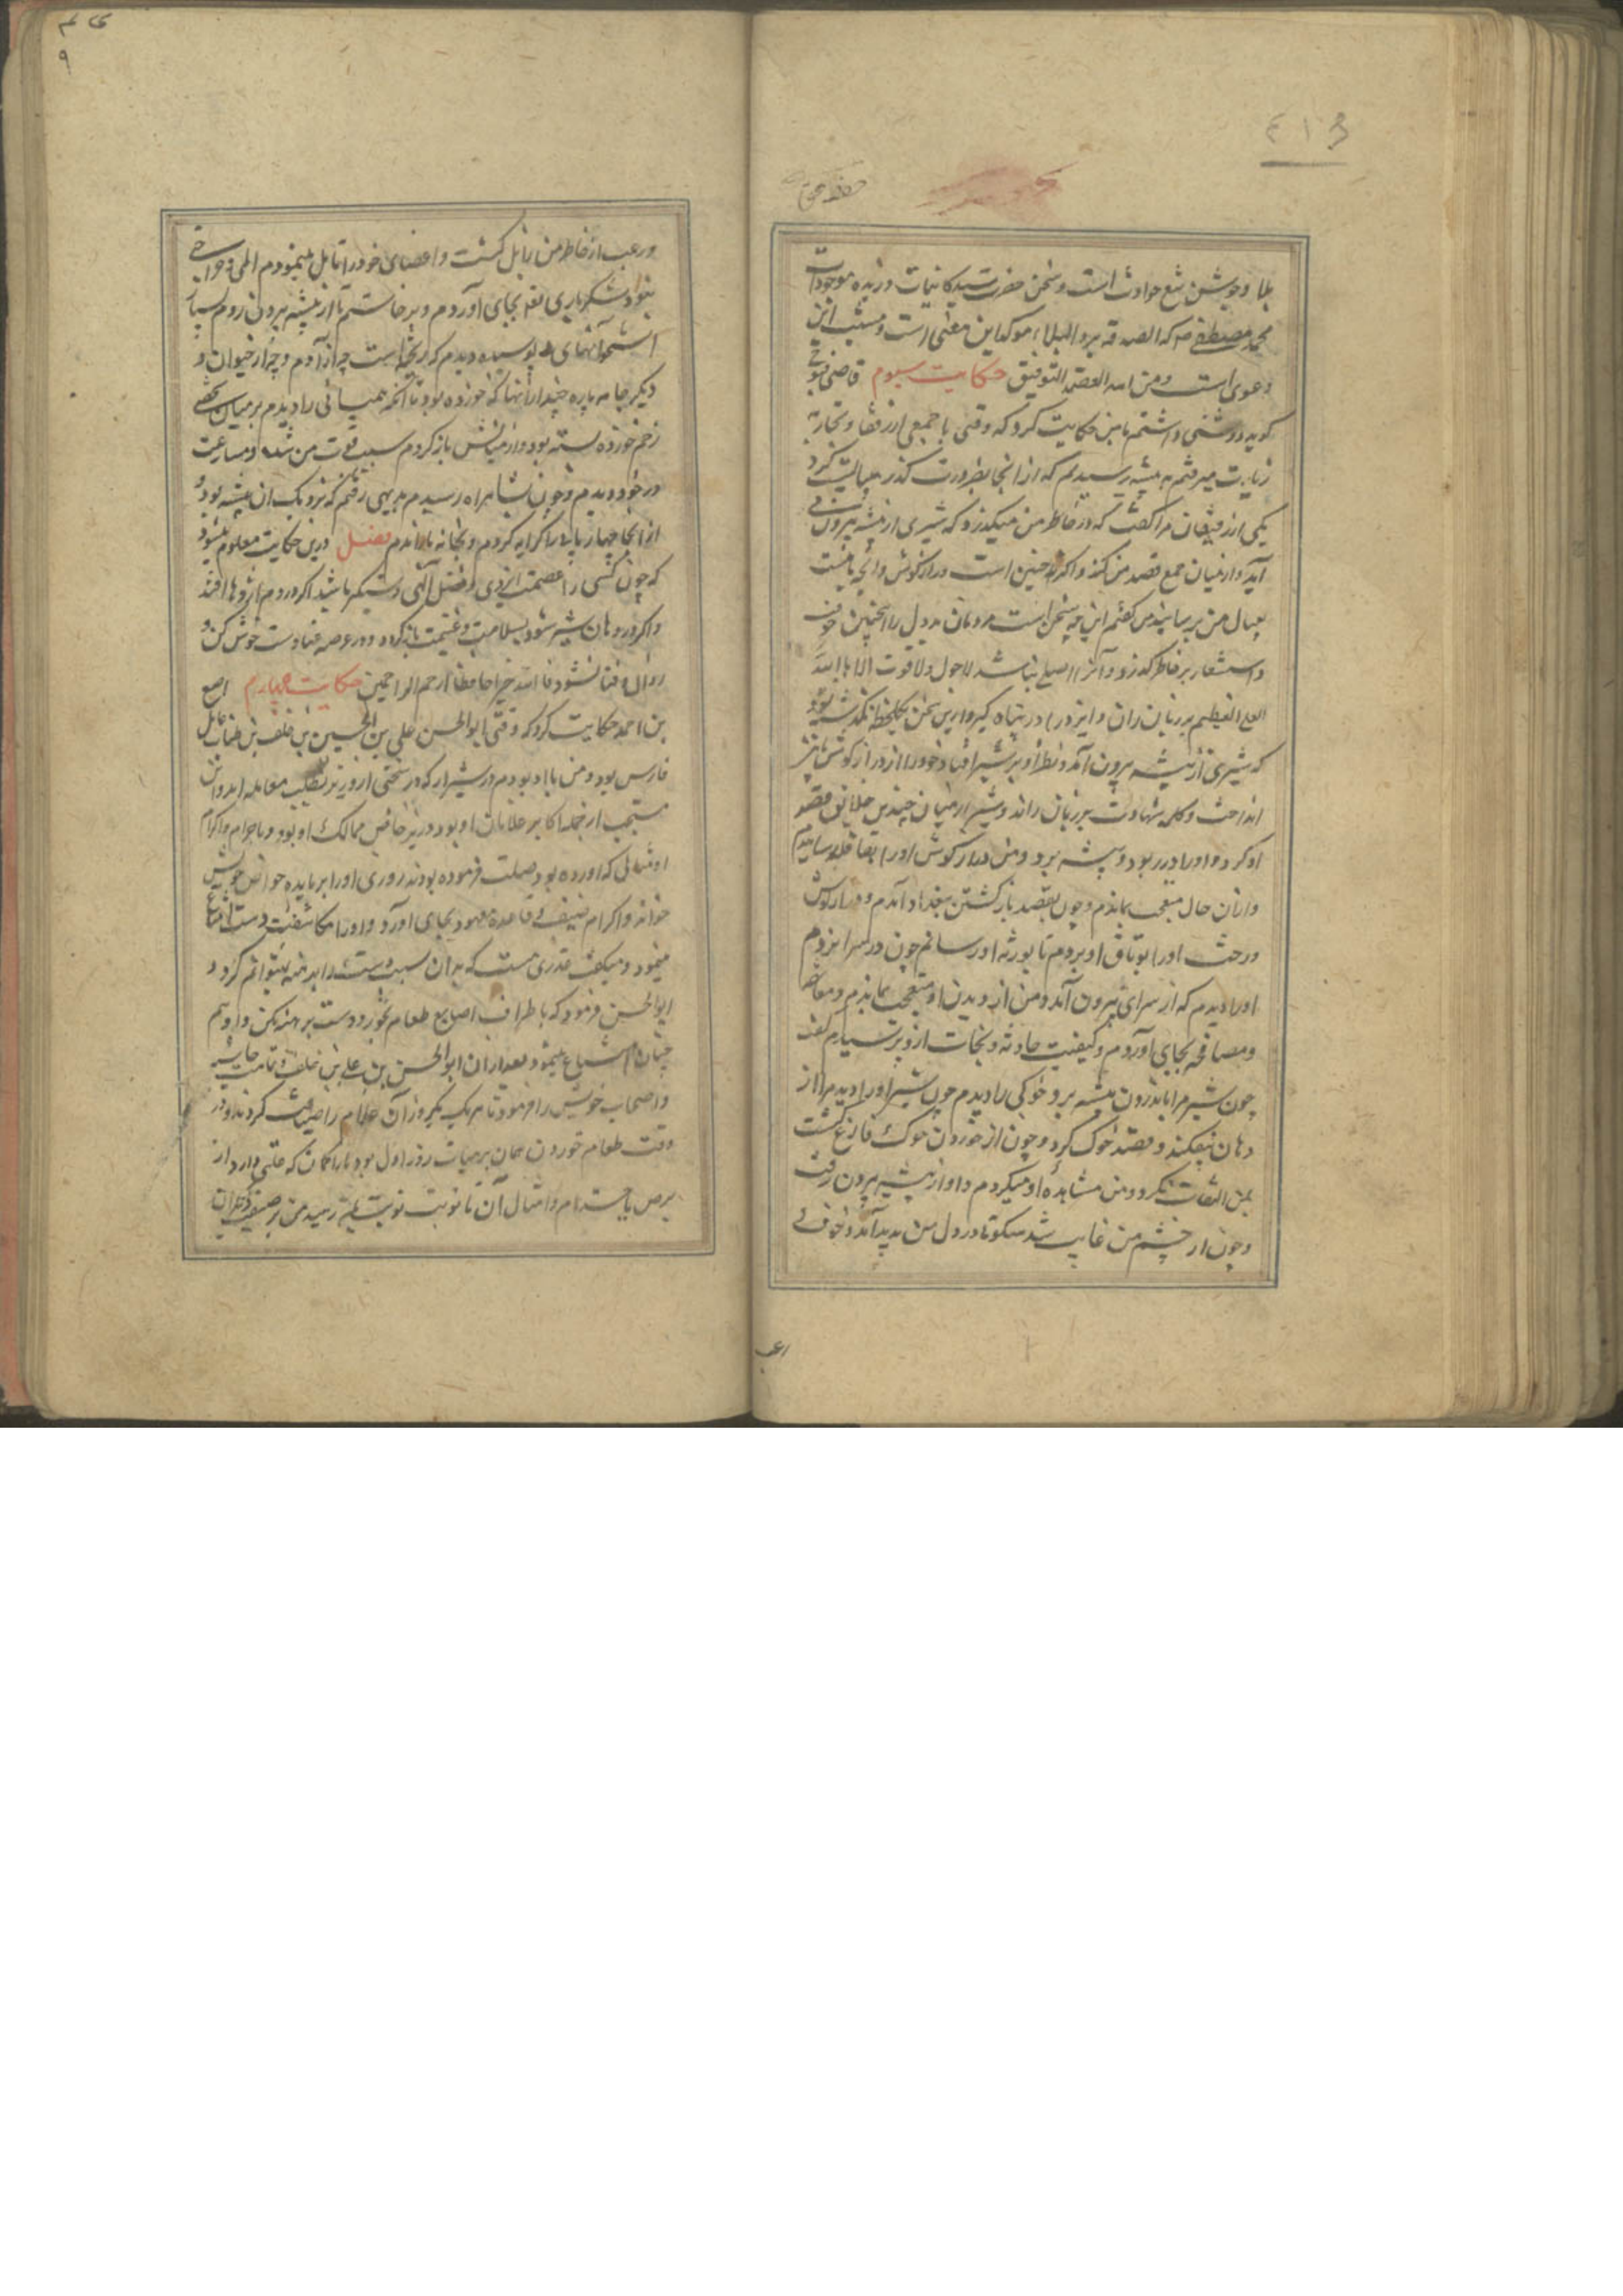 ۴۱۳
بلا و جوشن تیغ حوادث است و سخن حضرت سید کاینات و زبده موجودات
محمد مصطفی ص که الصدقه یرد البلاء موکد این معنی است و مثبت این
دعوی است و من الله العصمة و التوفیق حکایت سیوم قاضی تنوخی
گوید دوستی داشتم با من حکایت کرد که وقتی با جمعی از رفقا و تجار به
زیارت میرفتم به بیشه رسیدیم که از انجا بضرورت گذر میبایست کرد
یکی از رفیقان مرا گفت که در خاطر من میگذرد که شیری از بیشه بیرون می
آید و از میان جمع قصد من کند و اگر چنین است درازگوش و آنچه با منست
بعیال من برسانید من گفتم این چه سخن است مردمان بددل را همچنین خوف
و استشعار بر خاطر گذرد و آنرا اصلی نباشد لاحول ولا قوت الا بالله
العلی العظیم بر زبان ران و ایزد را در پناه گیر و ازین سخن یکلحظه نگذشته بود
که شیری از بیشه بیرون آمد و نظر او بر شیر افتاد خود را از درازگوش
انداخت و کلمه شهادت بر زبان راند و شیر از میان چندین خلایق قصد
او کرد و او را در ربود و به بیشه برد و من درازگوش او را بقافله رسانیدم
و از آن حال متعجب بماندم و چون بقصد بازگشتن ببغداد آمدم و درازگوش
و رخت او را بوثاق او بردم تا بورثه او رسانم چون در سرا بزدم
او را دیدم که از سرای بیرون آمد و من از دیدن او متعجب بماندم و معانقه
و مصافحه بجای آوردم و کیفیت حادثه و نجات ازو پرسیدم گفت
چون شیر مرا باندرون بیشه برد خوکی را دیدم چون شیر او را دید مرا از
دهان بیفکند و قصد خوک کرد و چون از خوردن خوک فارغ گشت
بمن التفات نکرد و من مشاهده او میکردم و او از بیشه بیرون رفت
و چون از چشم من غایب شد سکونتی در دل من پدید آمد و خوف
رعب
و رعب از خاطر من زایل گشت و اعضای خود را تامل مینمودم المی و جراحتی
نبود شکر باری تعالی بجای آوردم و برخاستم تا از بیشه بیرون روم بسیار
استخوانهای پوسیده دیدم که ریخته است چه از آدم و چه از حیوان و
دیگر جامه پاره چند از آنها که خورده بود تا آنکه همیانی را دیدم بر میان شخصی
زخم خورده بسته بود و از میانش باز کردم سبب قوت من شد و مسارعت
در خود دیدم و چون بشاهراه رسیدم بدیهی رفتم که نزدیک ان بیشه بود و
از انجا چهارپایی را کرایه کردم و بخانه باز آمدم فصل درین حکایت معلوم میشود
که چون کسی را عصمت ایزدی و فضل آلهی دستگیر باشد اگر در دم اژدها افتد
و اگر در دهان شیر شود بسلامت و غنیمت بازگردد و در عرصه فنا دست خوش
زوال و فنا نشود فالله خیر حافظا و هو ارحم الراحمین حکایت چهارم اصبغ
بن احمد حکایت کرد که وقتی ابو الحسن علی بن الحسین بن خلف بن طباب عامل
فارس بود و من با او بودم در شیراز که در سختی از وزیر بطلب معامله
مستحب از جمله اکابر غلامان او بود و زیر خاص ممالک او بود و باحترام و اکرام
او مثالی که اورده بود مهلت فرموده بودند روزی او را بر مایده خوان خویش
خواند و اکرام ضیف بقاعده معهود بجای اورد و او را مکاشفت دست امتناع
مینمود و میگفت عذری هست که بدان سبب دست را برهنه نتوانم کرد و
ابو الحسن فرمود که باطراف اصابع طعام بخور و دست برهنه مکن و او هم
چنان امتناع مینمود بعد از ان ابو الحسن بن علی بن خلف و تمامت حاشیه
و اصحاب خویش را فرمود تا هر یک یکروز آن غلام را ضیافت کردند و در
وقت طعام خوردن همان بر هیات روز اول بود ما را گمان که علتی دارد از
برص یا جذام و امثال آن تا نوبت نوبت بمن رسید من